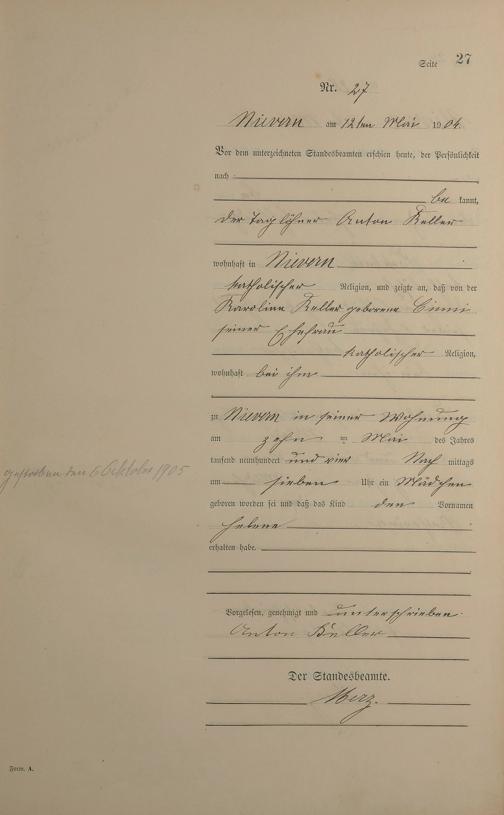 Seite 27
Nr. 27
Nievern am 12ten Mai 1904.
Vor dem unterzeichneten Standesbeamten erschien heute, der Persönlichkeit
nach
be kannt,
der Taglöhner Anton Keller
wohnhaft in Nievern
katholischer Religion, und zeigte an, daß von der
Karolina Keller geborene
seiner Ehefrau
katholischer Religion,
wohnhaft bei ihm
zu Nievern in seiner Wohnung
am zehn = Mai des Jahres
tausend neunhundert und vier Nach mittags
um sieben Uhr ein Mädchen
geboren worden sei und daß das Kind den Vornamen
Helene
erhalten habe.
gestorben den 6 Oktober 1905
Vorgelesen, genehmigt und unterschrieben
Anton Keller
Der Standesbeamte.
Merz.
Form. A.